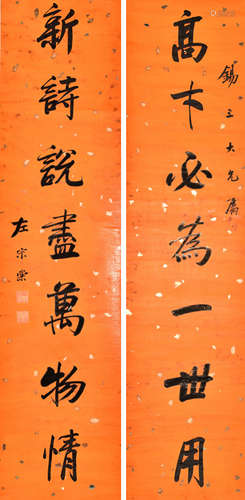 錫三大兄屬
高才必為一世用
新詩說盡萬物情
左宗棠